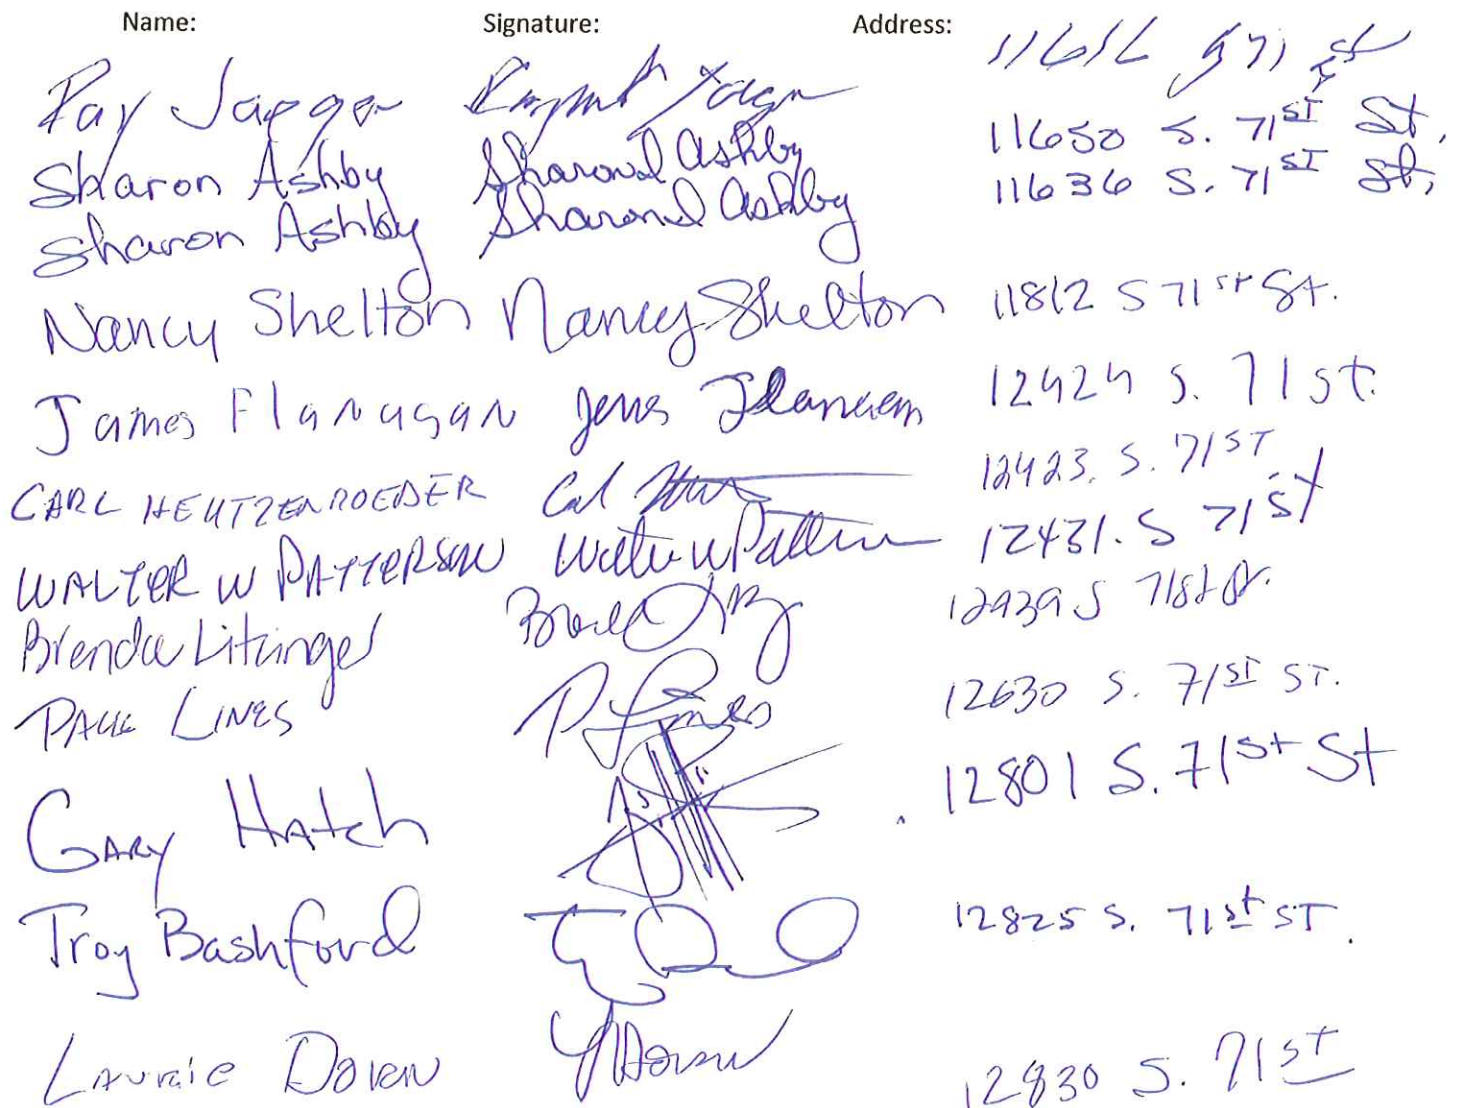 Name: Signature: Address:
Ray Jaeger 11616 S 71 st
Sharon Ashby Sharon Ashby 11650 S. 71ST St.
Sharon Ashby Sharon Ashby 11636 S. 71ST St.
Nancy Shelton Nancy Shelton 11812 S 71st St.
James Flanagan 12424 S. 71st.
CARL HEUTZENROEDER 12423. S. 71ST
WALTER W PATTERSON Walter W Patterson 12431. S 71st
Brenda Litzinger 12939 S 71st
PAUL LINES P Lines 12630 S. 71ST ST.
GARY HATch 12801 S. 71st St
Troy Bashford 12825 S. 71st ST.
LAURIE DOREN 12830 S. 71st